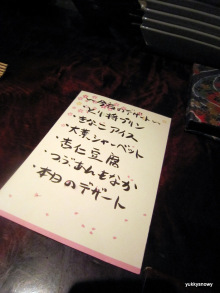 デザート
プリン
・きなこアイス
・大葉シャーベット
・杏仁豆腐
・つぶあんもなか
・本日のデザート
yukkysnowy